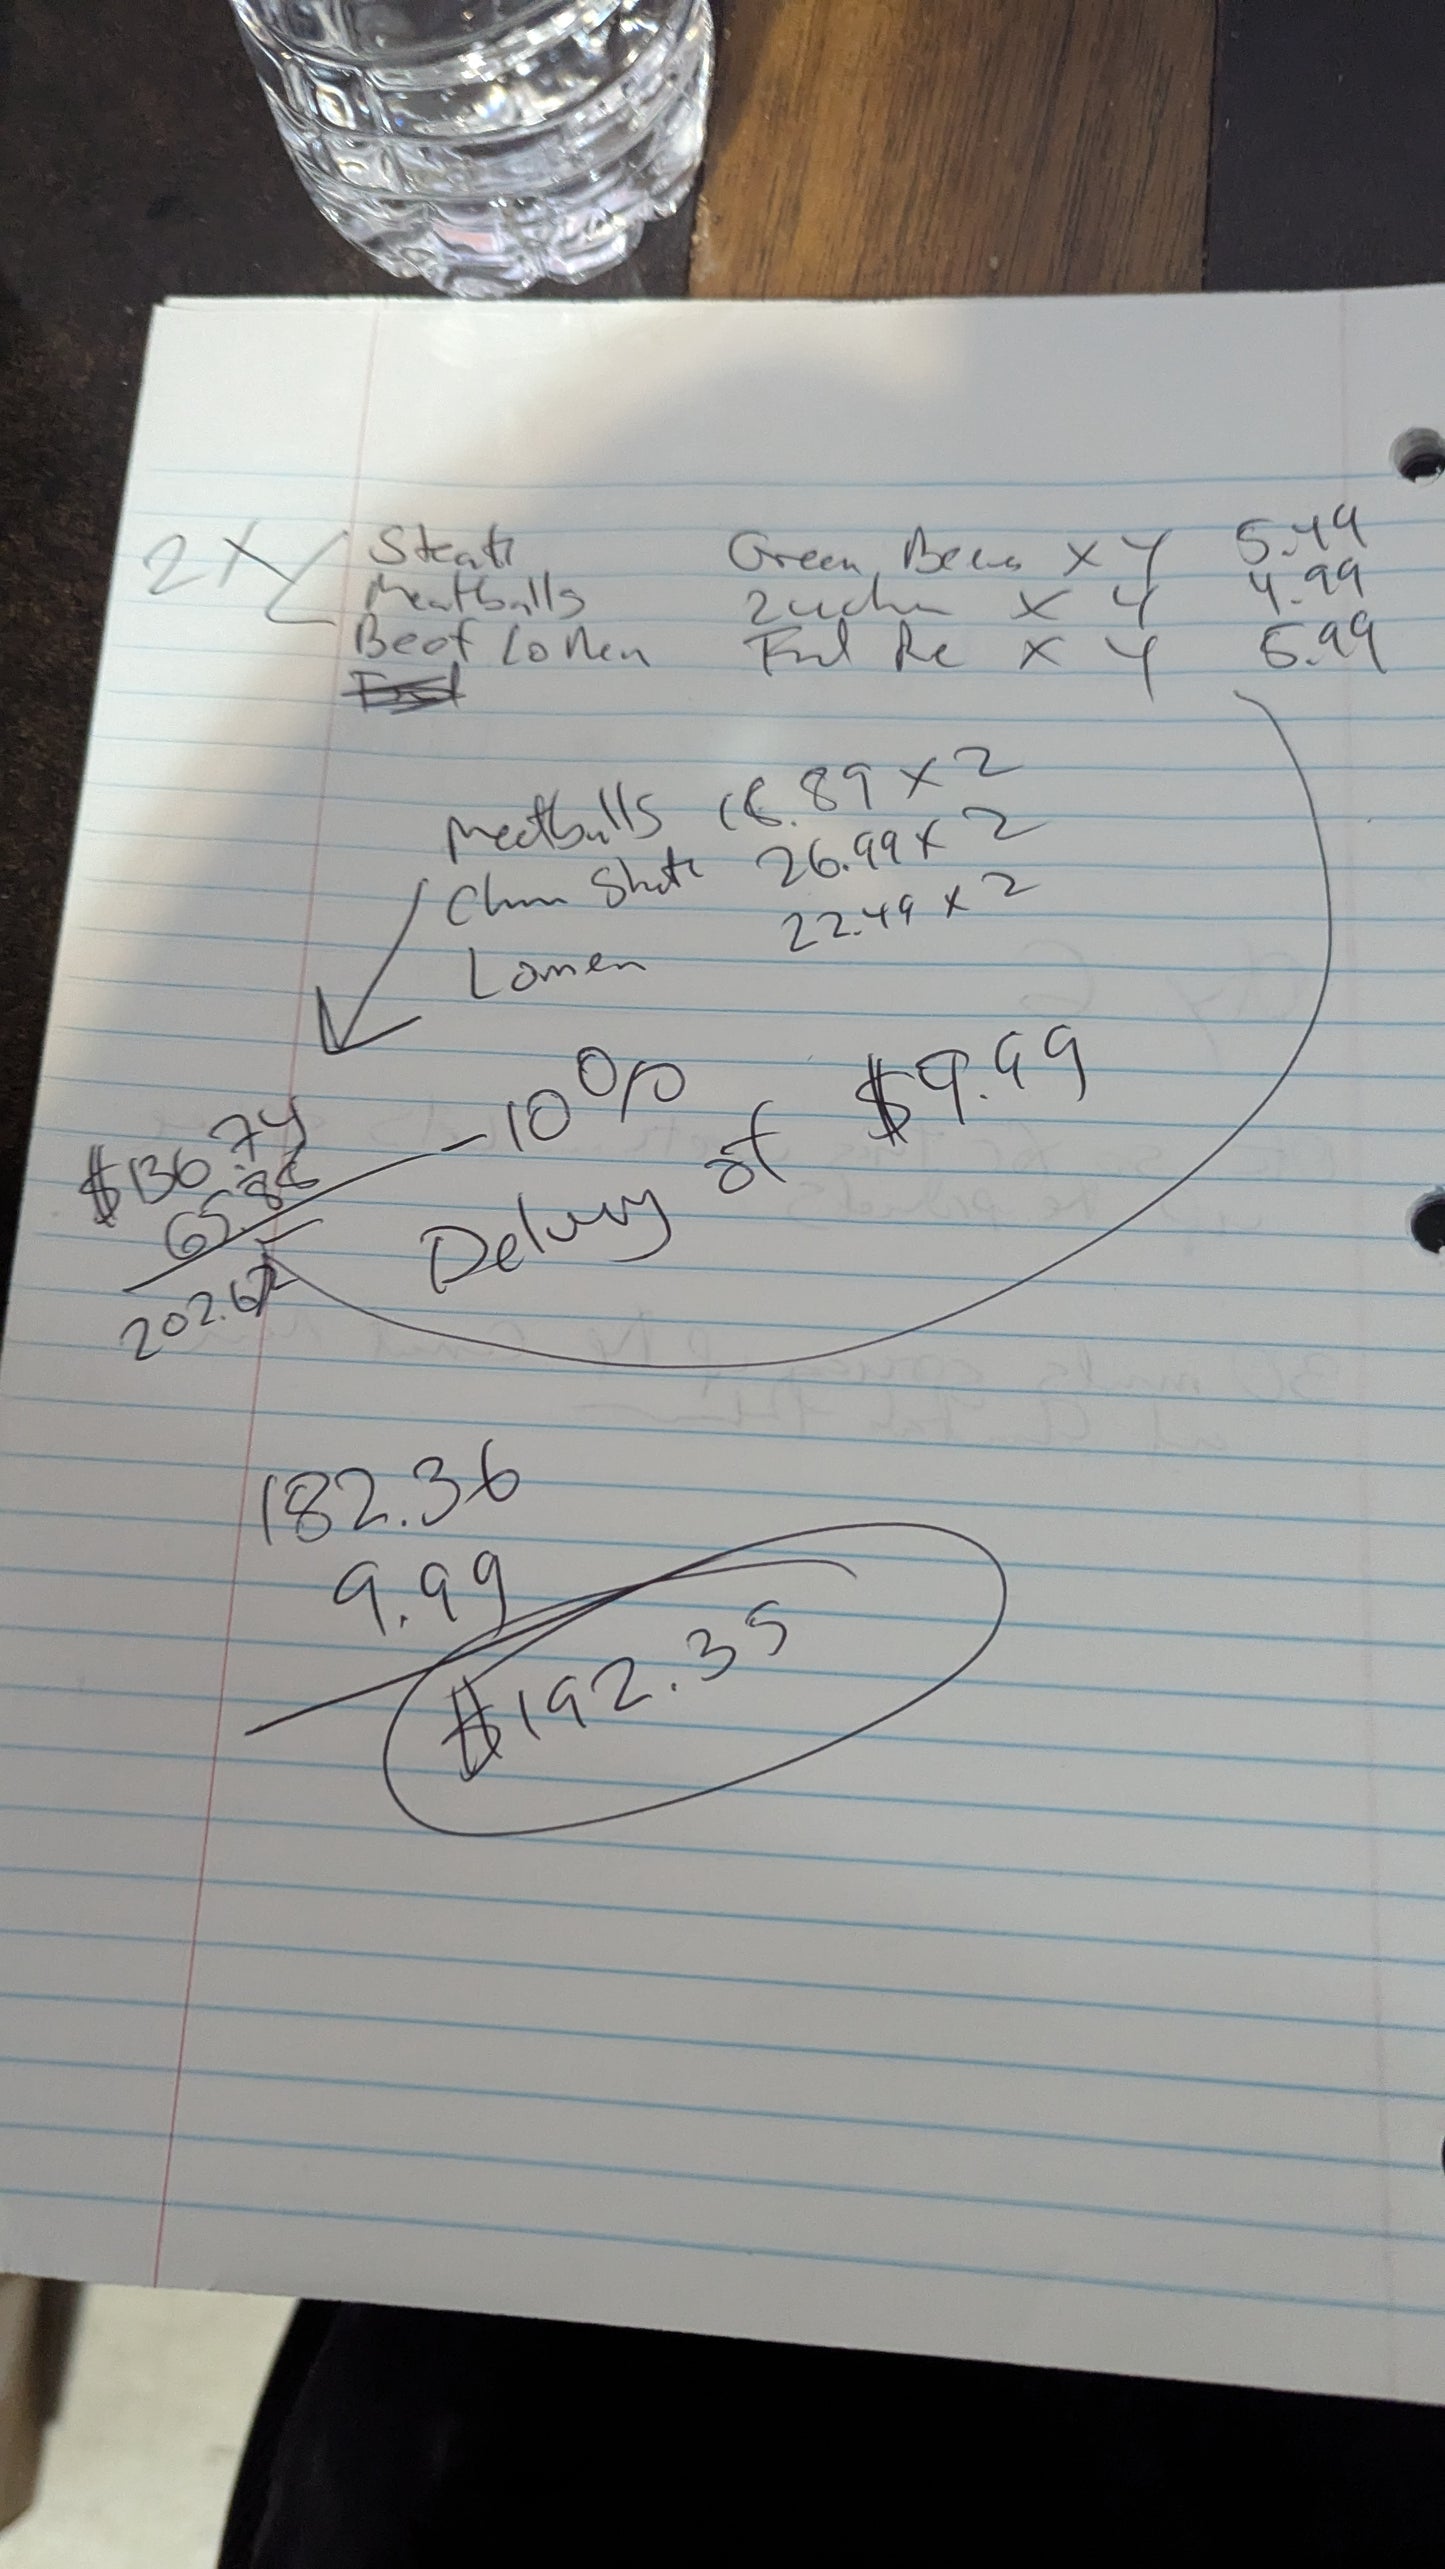 2X Steak Green Beans x 4 5.49
Meatballs Zucchn x 4 4.99
Beef Lo Men x 4 5.99
Meatballs 18.89 x 2
Churr 26.99 x 2
Lomen 22.49 x 2
$136.74 -10%
65.88 Delivery of $9.99
202.62
182.36
9.99
$192.35